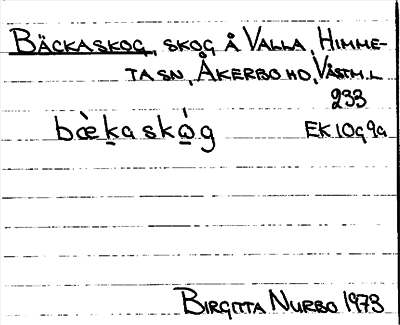 BÄCKASKOG, SKOG Å VALLA, HIMME-
TA SN, ÅKERBO HD, VÄSTM.L
233
bæ̀ḵaskò̱g EK 10g9a
BIRGITTA NURBO 1973